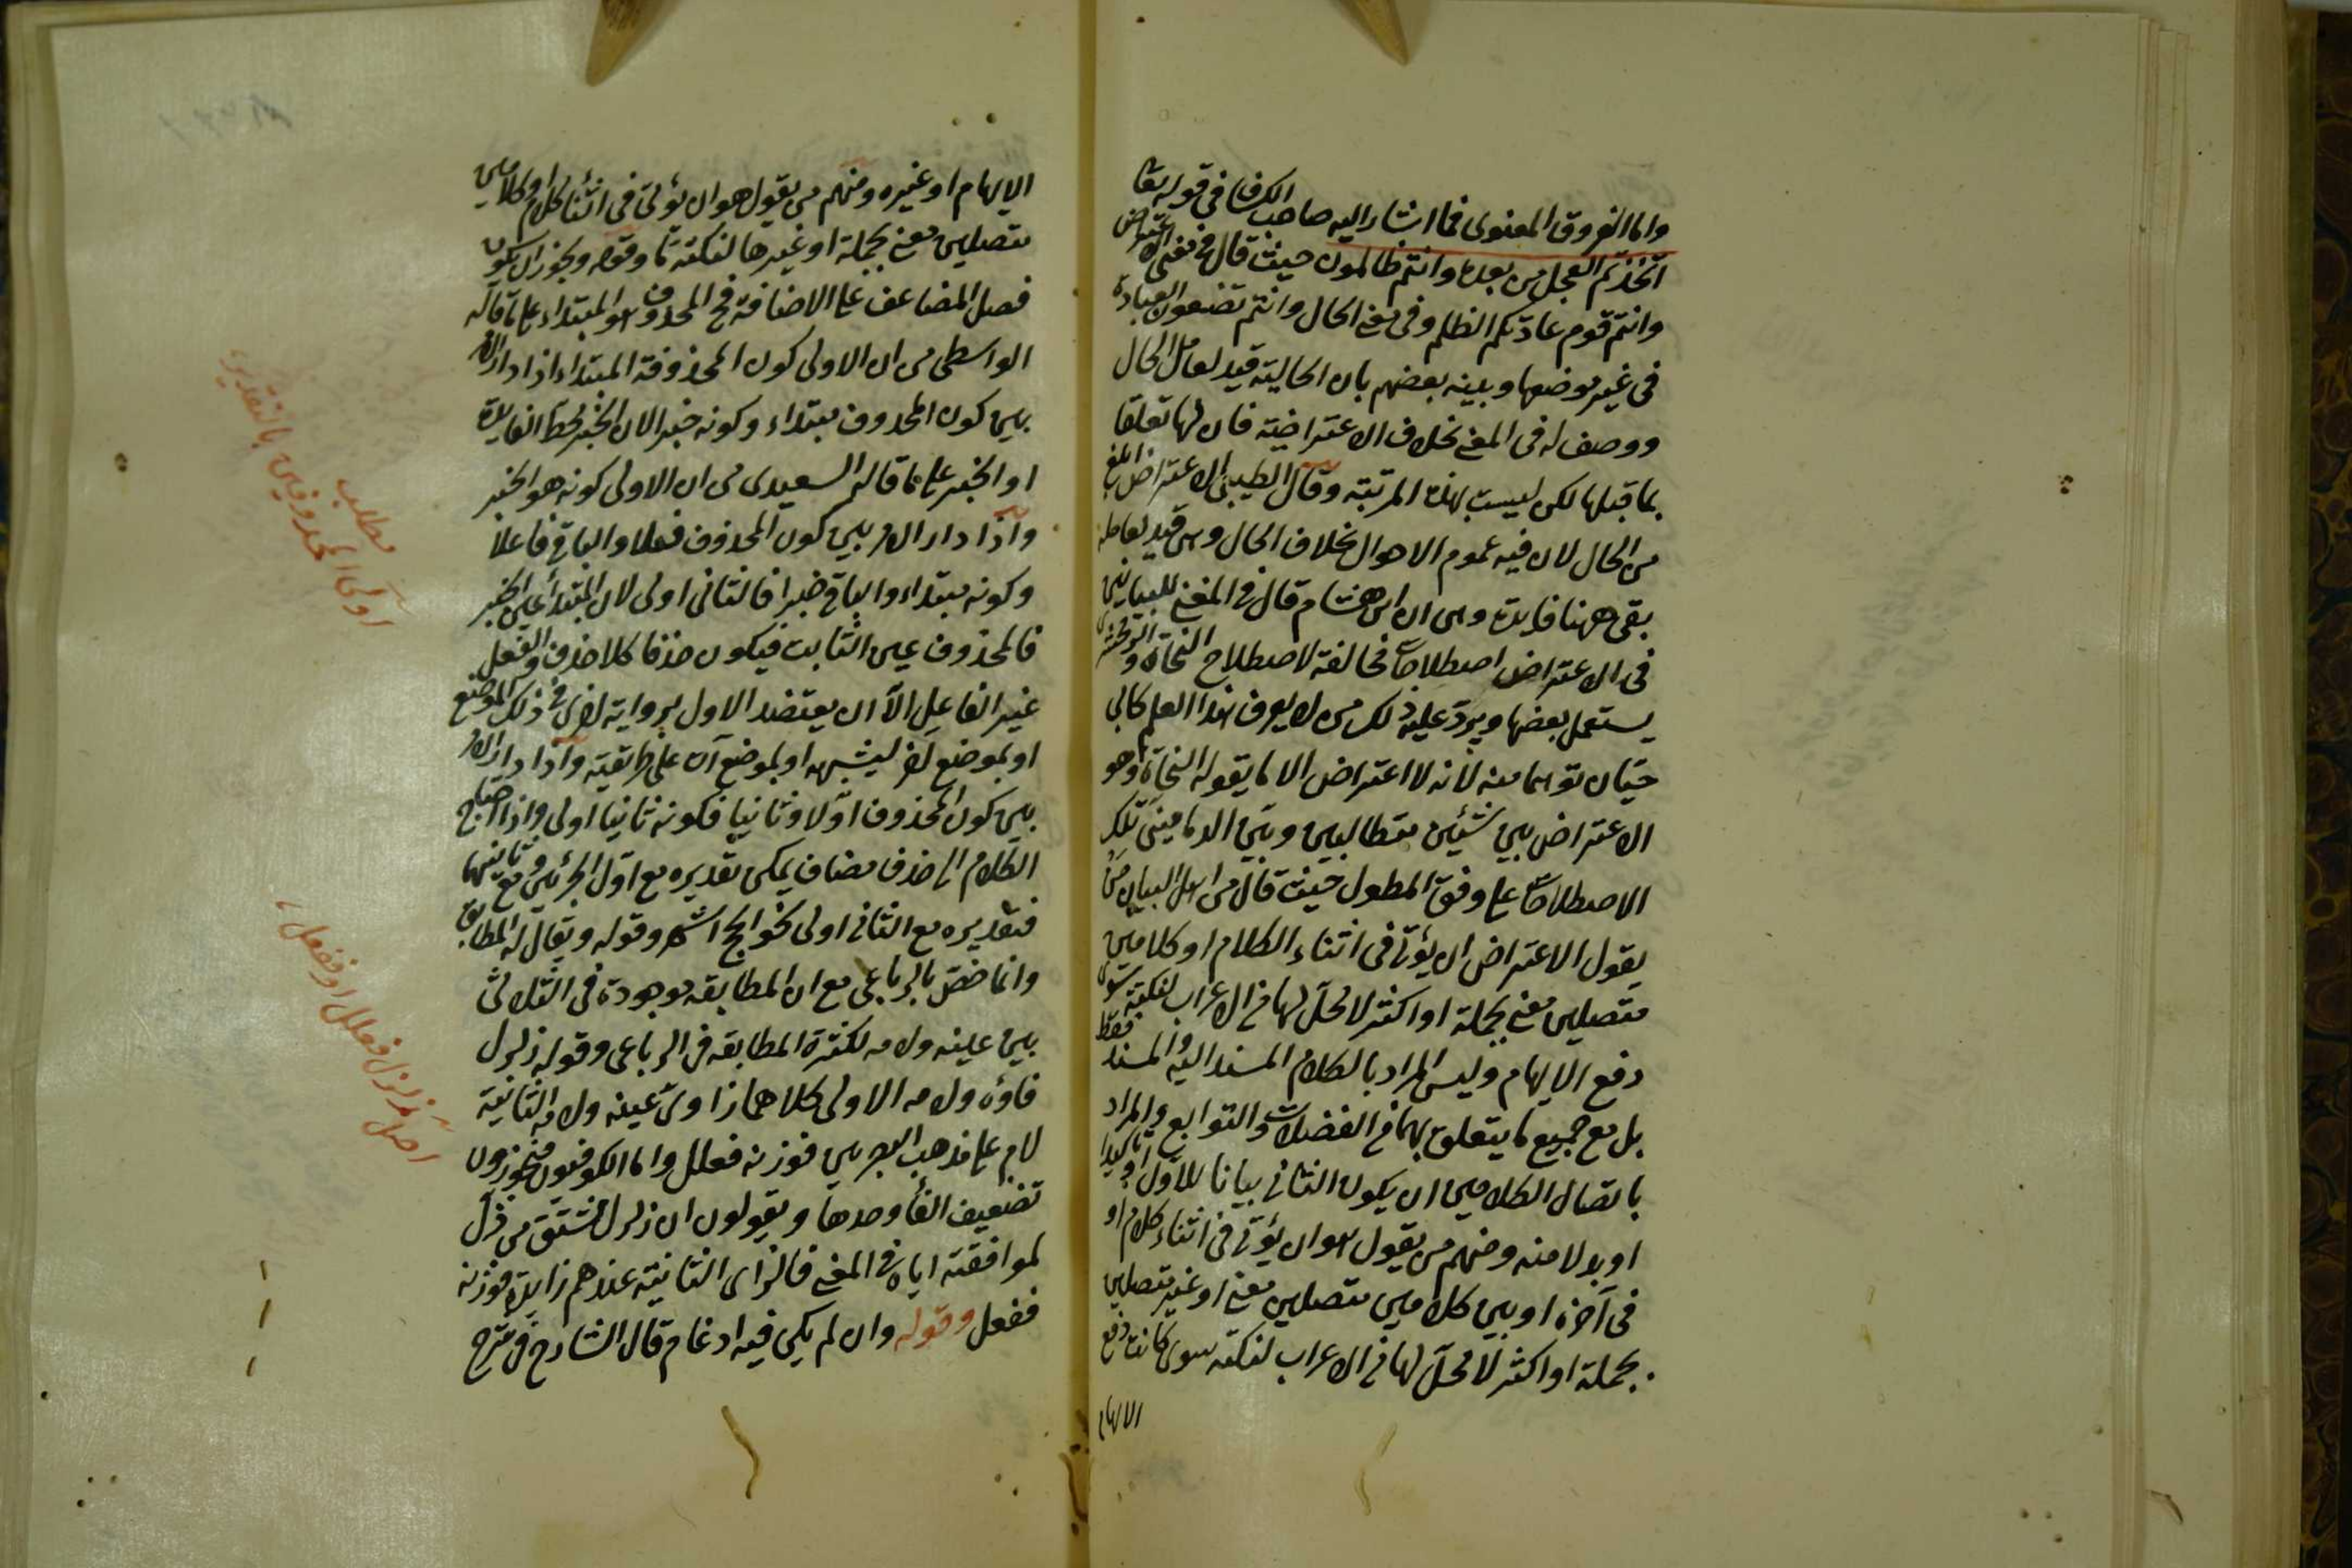 واما الفروق المعنوى فما اشار اليه صاحب الكشاف فى قوله تعا
اتخذتم العجل من بعده وانتم ظالمون حيث قال فى معنى الاعتراض
وانتم قوم عادتكم الظلم وفى معنى الحال وانتم تضعون العبادة
فى غير موضعها وبينه بعضهم بان الحالية قيد لعامل الحال
ووصف له فى المعنى بخلاف الاعتراضية فان لها تعلقا
بما قبلها لكن ليست بهذه المرتبة وقال الطيبى الاعتراض ابلغ
من الحال لان فيه عموم الاحوال بخلاف الحال وهى قيد لعامله
بقى ههنا فايدة وهى ان ابن هشام قال فى المغنى للبيانيين
فى الاعتراض اصطلاحات مخالفة لاصطلاح النحاة والزمخشرى
يستعمل بعضها ويردّ عليه ذلك من لا يعرف هذا العلم كابى
حيّان توهما منه لانه لا اعتراض الا ما يقوله النحاة وهو
الاعتراض بين شيئين متطالبين وبيّن الدمامينى تلك
الاصطلاحات على وفق المطول حيث قال من اهل البيان من
يقول الاعتراض ان يؤتى فى اثناء الكلام او كلامين
متصلين معنى بجملة او اكثر لا محلّ لها من الاعراب لنكتة سوى
دفع الايهام وليس المراد بالكلام المسند اليه والمسند فقط
بل مع جميع ما يتعلق بهما من الفضلات والتوابع والمراد
باتصال الكلامين ان يكون الثانى بيانا للاول او تاكيدا
او بدلا منه ومنهم من يقول هو ان يؤتى فى اثناء كلام او
فى آخره او بين كلامين متصلين معنى او غير متصلين
بجملة او اكثر لا محلّ لها من الاعراب لنكتة سوى كانت دفع
الايهام
الايهام او غيره ومنهم من يقول هو ان يؤتى فى اثناء كلام او كلامين
متصلين معنى بجملة او غيرها لنكتة ما وقوله ويجوز ان يكون
فصل المضاعف على الاضافة فح المحذوف هو المبتداء على ما قاله
الواسطى من ان الاولى كون المحذوفة المبتداء اذا دار الامر
بين كون المحذوف مبتداء وكونه خبرا لان الخبر محط الفايدة
او الخبر على ما قاله السعيدى من ان الاولى كونه هو الخبر
واذا دار الامر بين كون المحذوف فعلا والباقى فاعلا
وكونه مبتداء والباقى خبرا فالثانى اولى لان المبتدأ عين الخبر
فالمحذوف عين الثابت فيكون حذفا كلا حذف والفعل
غير الفاعل الّا ان يعتضد الاول برواية اخرى فى ذلك الموضع
او بموضع اخر يشبهه او بموضع آت على طريقته واذا دار الامر
بين كون المحذوف اوّلا وثانيا فكونه ثانيا اولى واذا احتاج
الكلام الى حذف مضاف يمكن تقديره مع اوّل الجزئين ومع ثانيهما
فتقديره مع الثانى اولى نحو الحج اشهر وقوله ويقال له المطابق
وانما خصّ بالرباعى مع ان المطابقه موجودة فى الثلاثى
بين عينه ولامه لكثرة المطابقه فى الرباعى وقوله زلزل
فاؤه ولامه الاولى كلاهما زاوىّ عينه ولامه الثانية
لام على مذهب البصريين فوزنه فعلل واما الكوفيون فيجوزون
تضعيف الفأ وحدها ويقولون ان زلزل مشتق من زلّ
لموافقته اياه فى المعنى فالزاى الثانية عندهم زايدة فوزنه
ففعل وقوله وان لم يكن فيه ادغام قال الشارح فى شرح
مطلب
اولى المحذوفين بالتقدير
اصل زلزل فعلل او ففعل